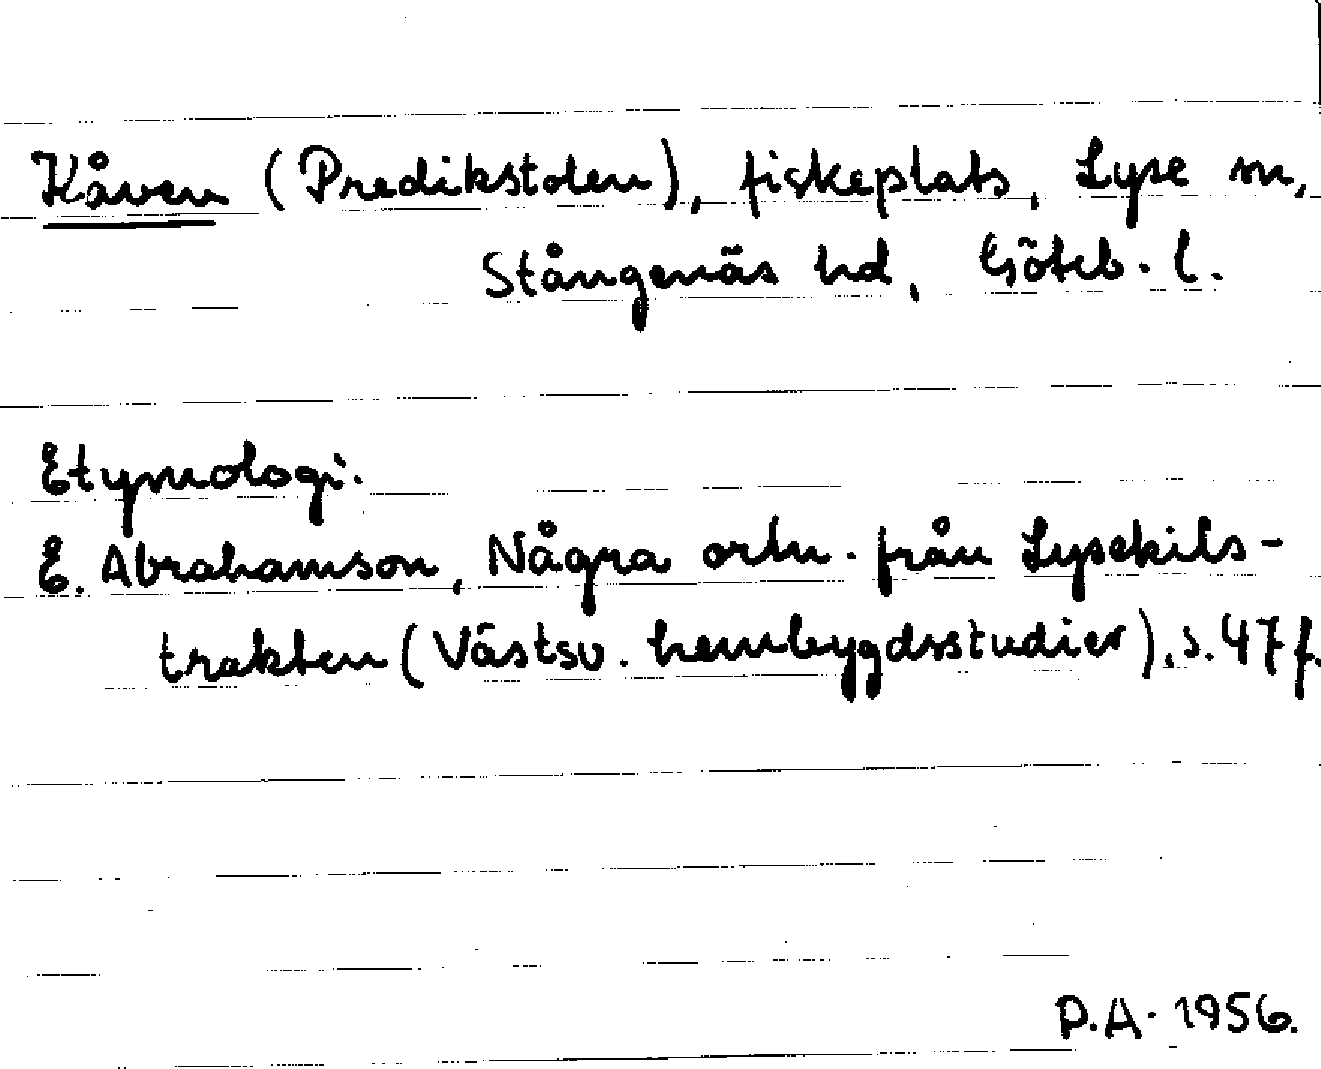 Kåven (Predikstolen), fiskeplats, Lyse sn,
Stångenäs hd, Göteb. l.
Etymologi.
E. Abrahamson, Några ortn. från Lysekils-
trakten (Västsv. hembygdsstudier), s. 47 f.
D.A. 1956.